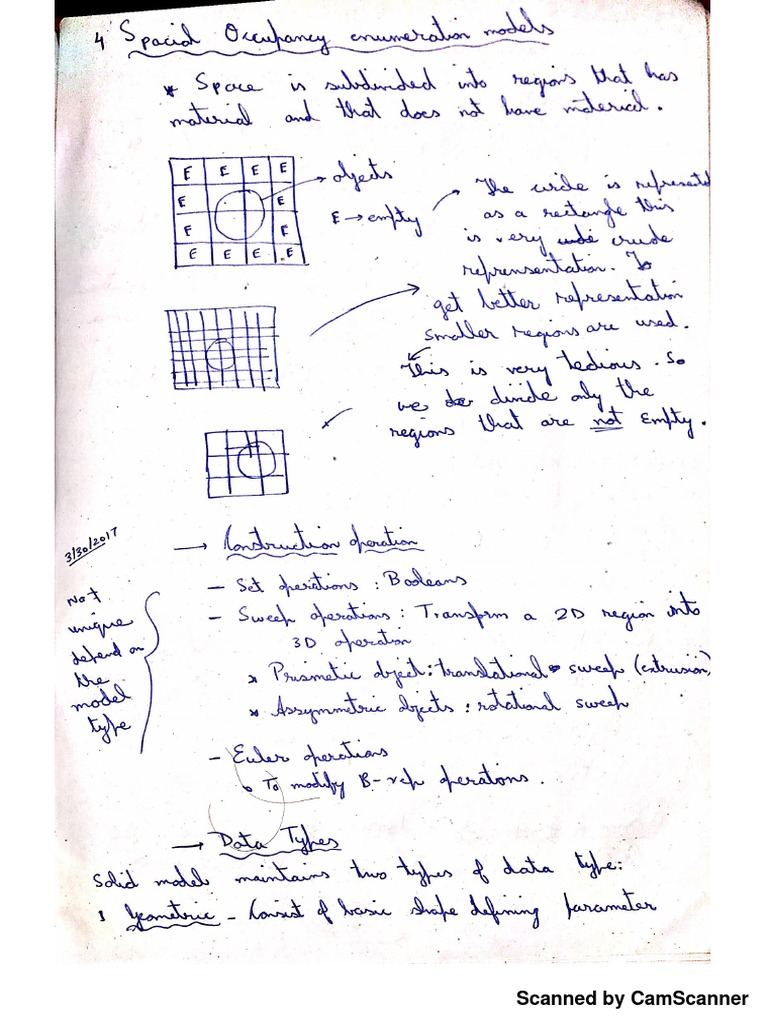 4 Spacial Occupancy enumeration models
* Space is subdivided into regions that has
material and that does not have material.
E E E E
E E
E E
E E E E
objects
E → empty
The circle is represented
as a rectangle this
is very crude
reprensentation. To
get better representation
smaller regions are used.
This is very tedious. So
we divide only the
regions that are not Empty.
3/30/2017
→ Construction operation
- Set operations : Booleans
- Sweep operations : Transform a 2D region into
3D operation
* Prismetic object : translational sweep (extrusion)
* Assymmetric objects : rotational sweep
- Euler operations
o To modify B-rep operations.
Not
unique
depend on
the
model
type
→ Data Types
Solid model maintains two types of data type:
1 Geometric - Consist of basic shape defining parameter
Scanned by CamScanner